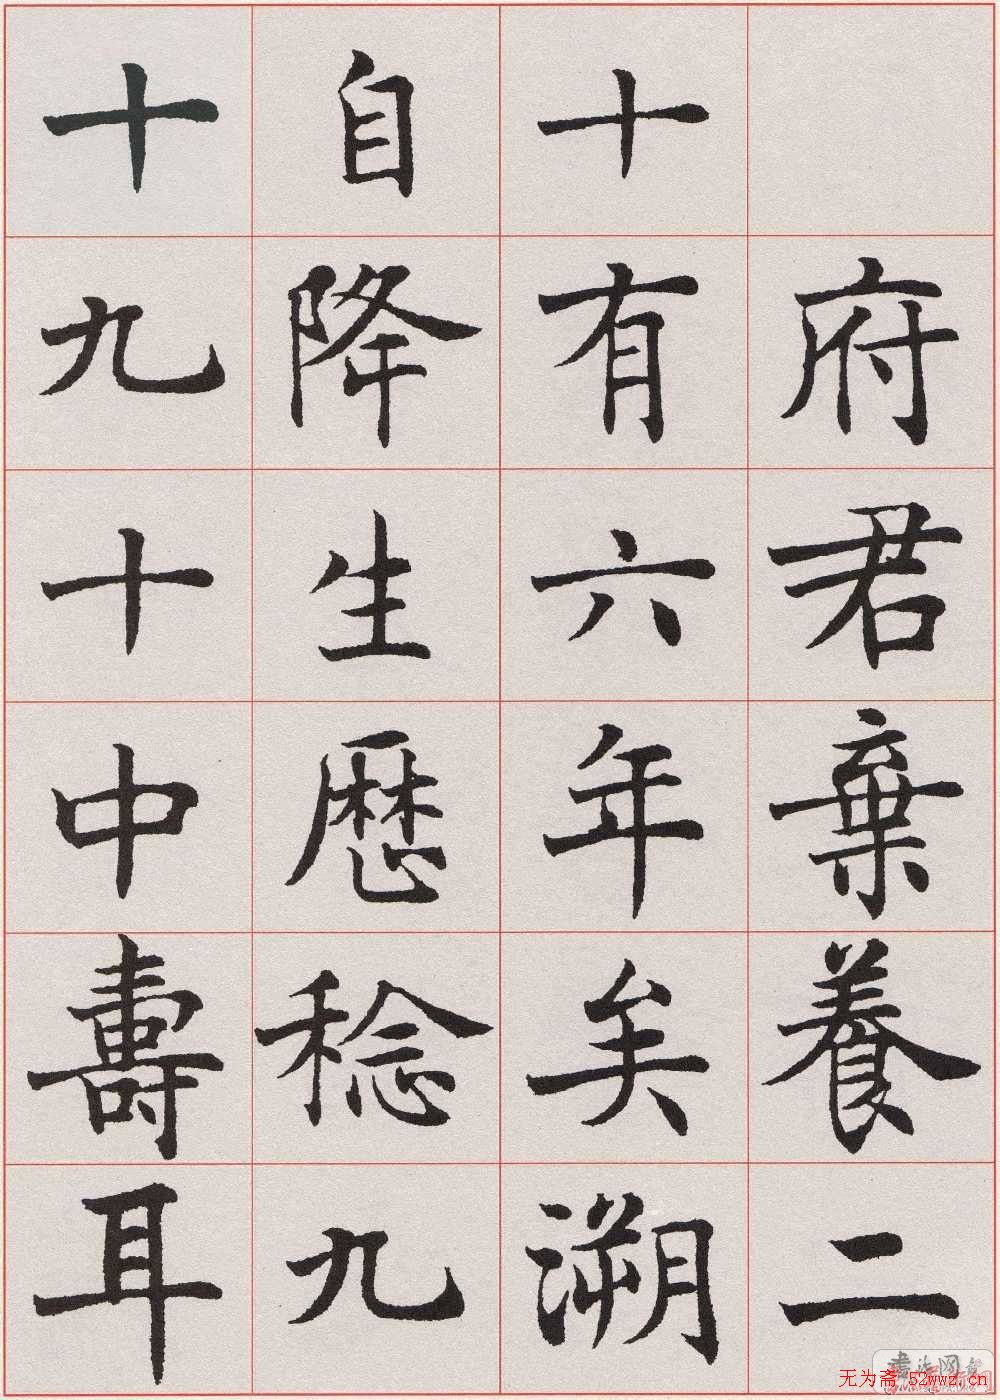 府君棄養二
十有六年矣溯
自降生歷稔九
十九十中壽耳
无为斋 52wwz.cn